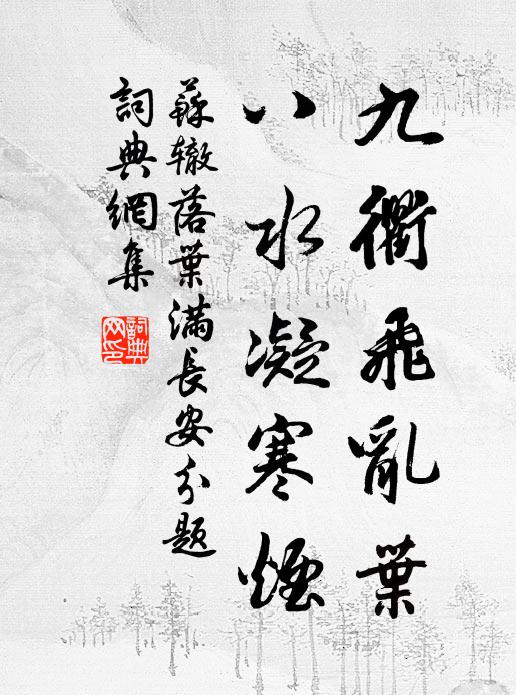 九衢飛亂葉
八水凝寒煙
蘇轍落葉滿長安分題
詞典網集
詞典網印